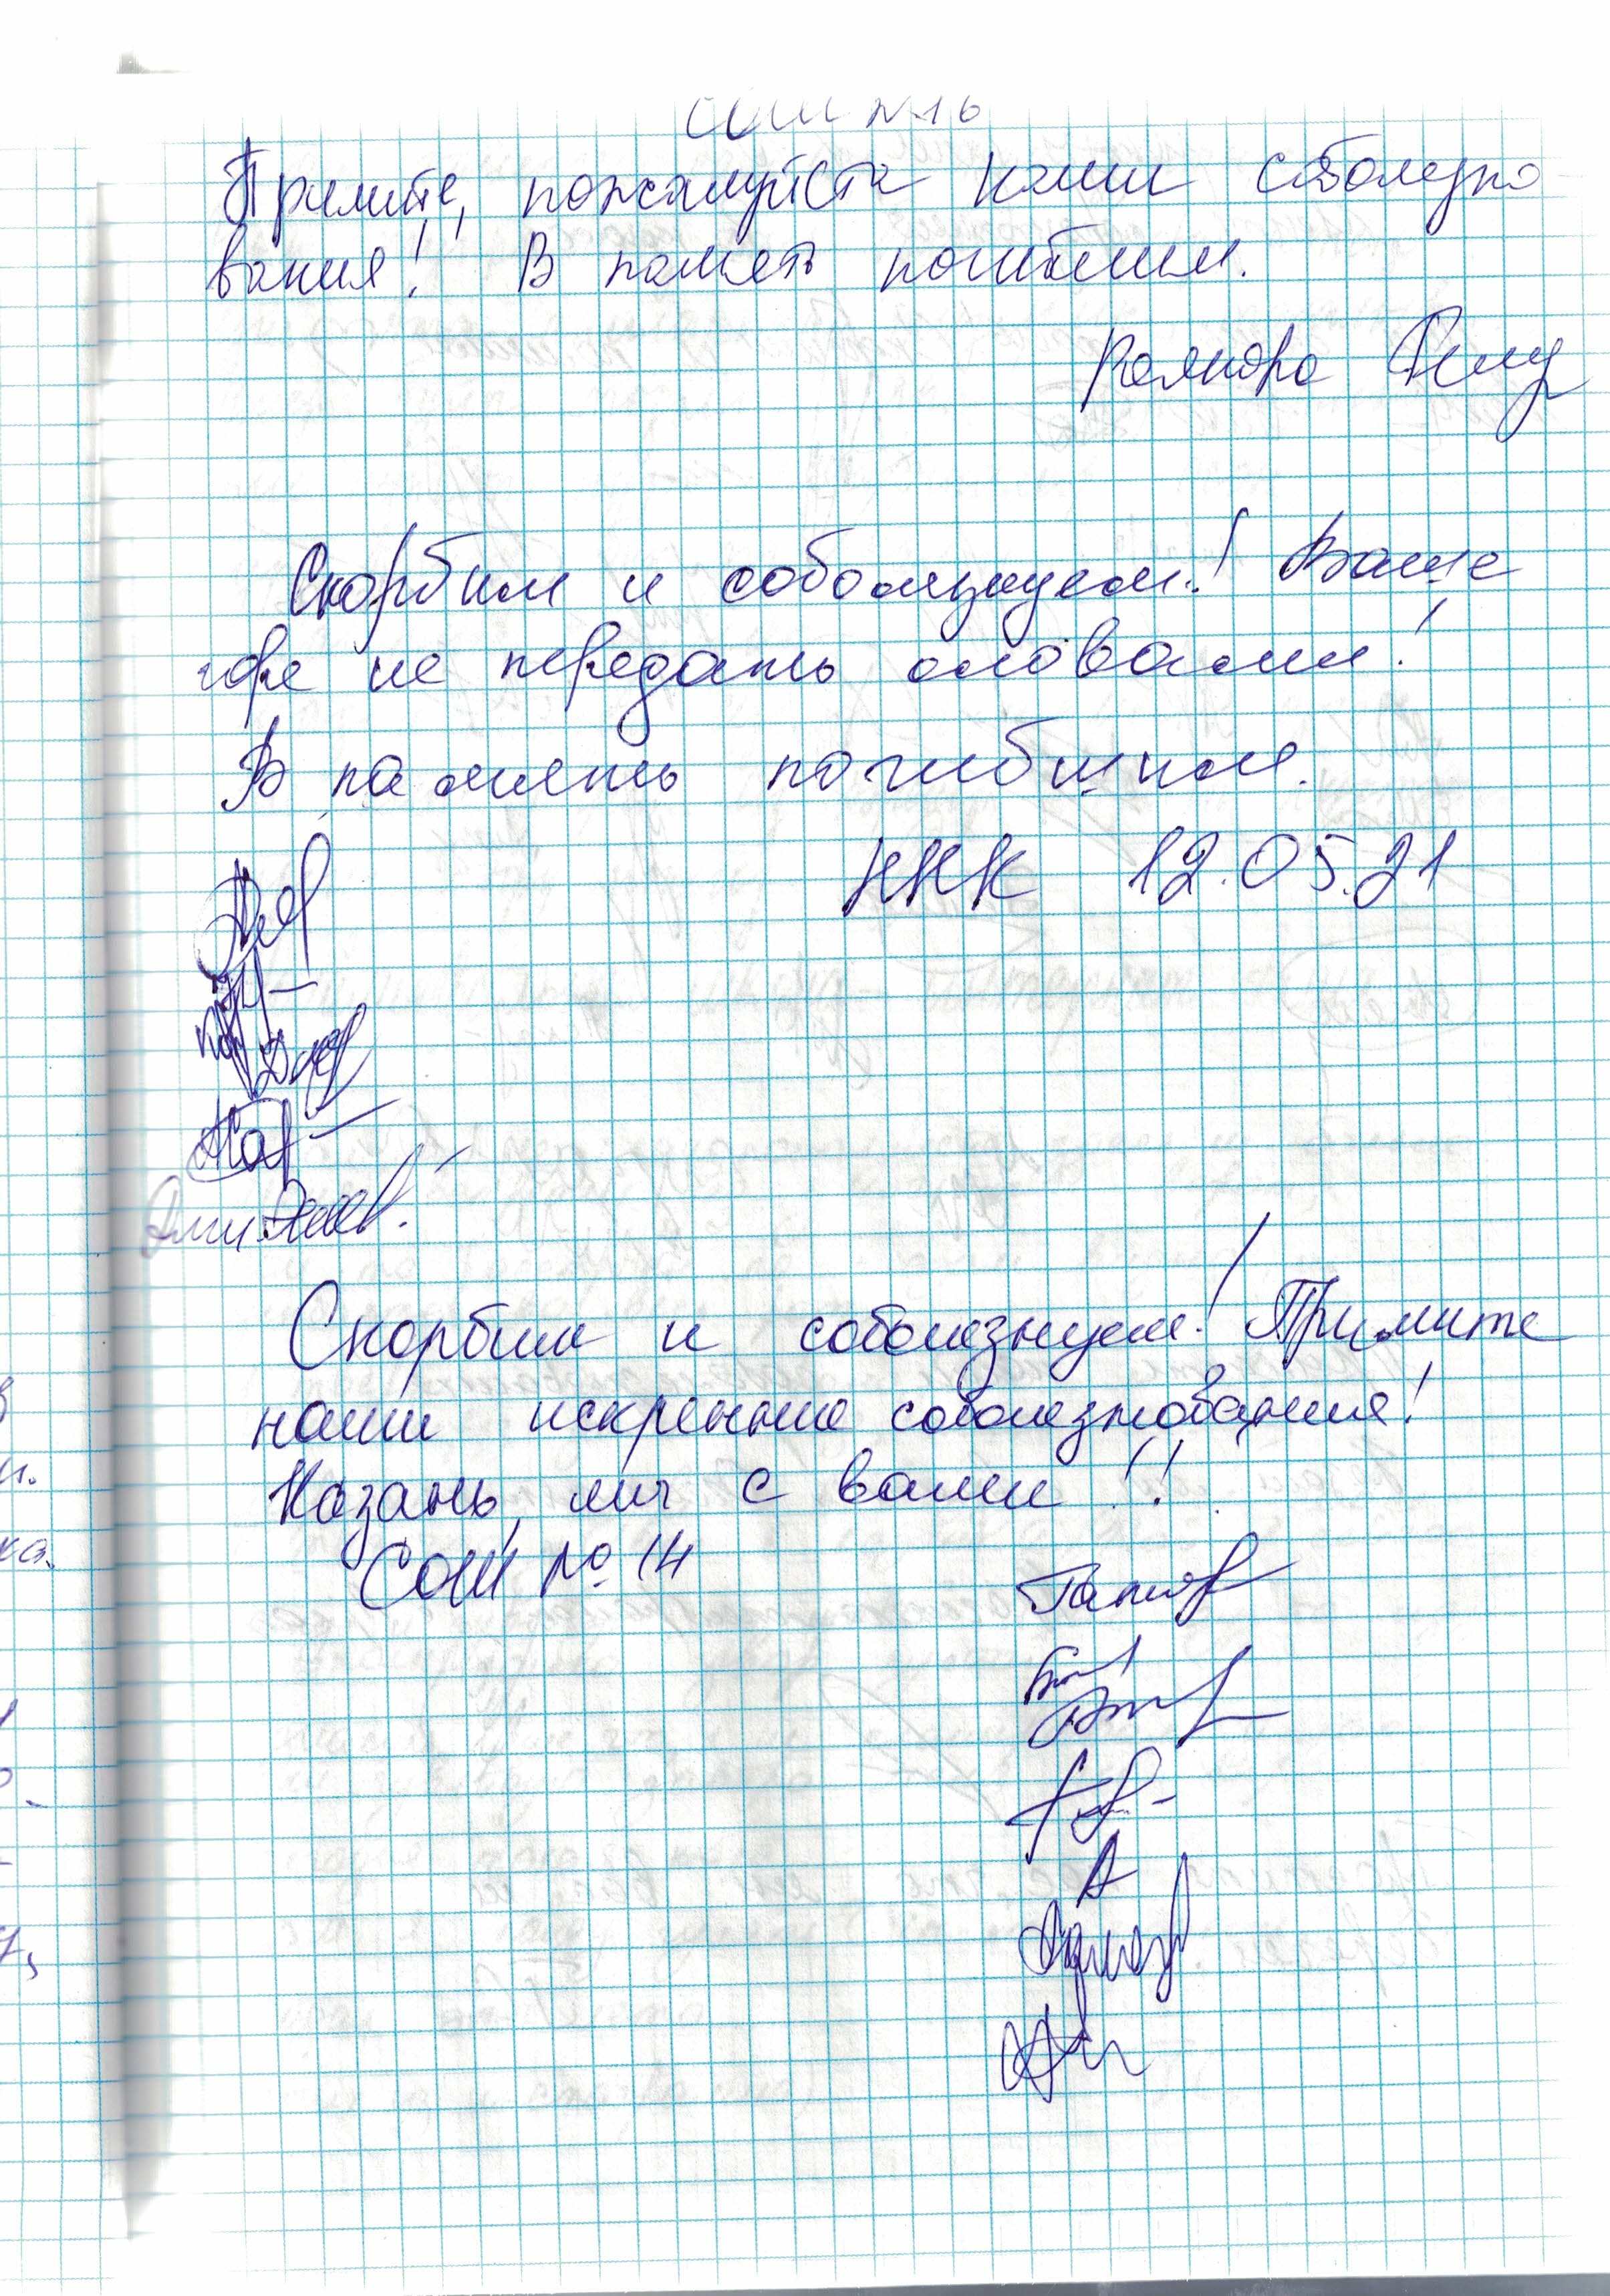 СОШ №16
Примите, пожалуйста наши соболезно-
вания! В память погибшим.
Скорбим и соболезнуем! Ваше
горе не передать словами!
В память погибшим.
ННК 12.05.21
Скорбим и соболезнуем! Примите
наши искренние соболезнования!
Казань, мы с вами!!
СОШ №14